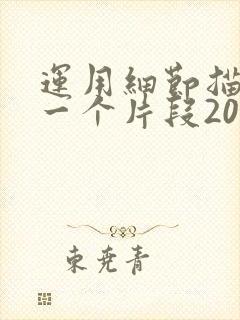 運用細節描
一个片段20
東堯青